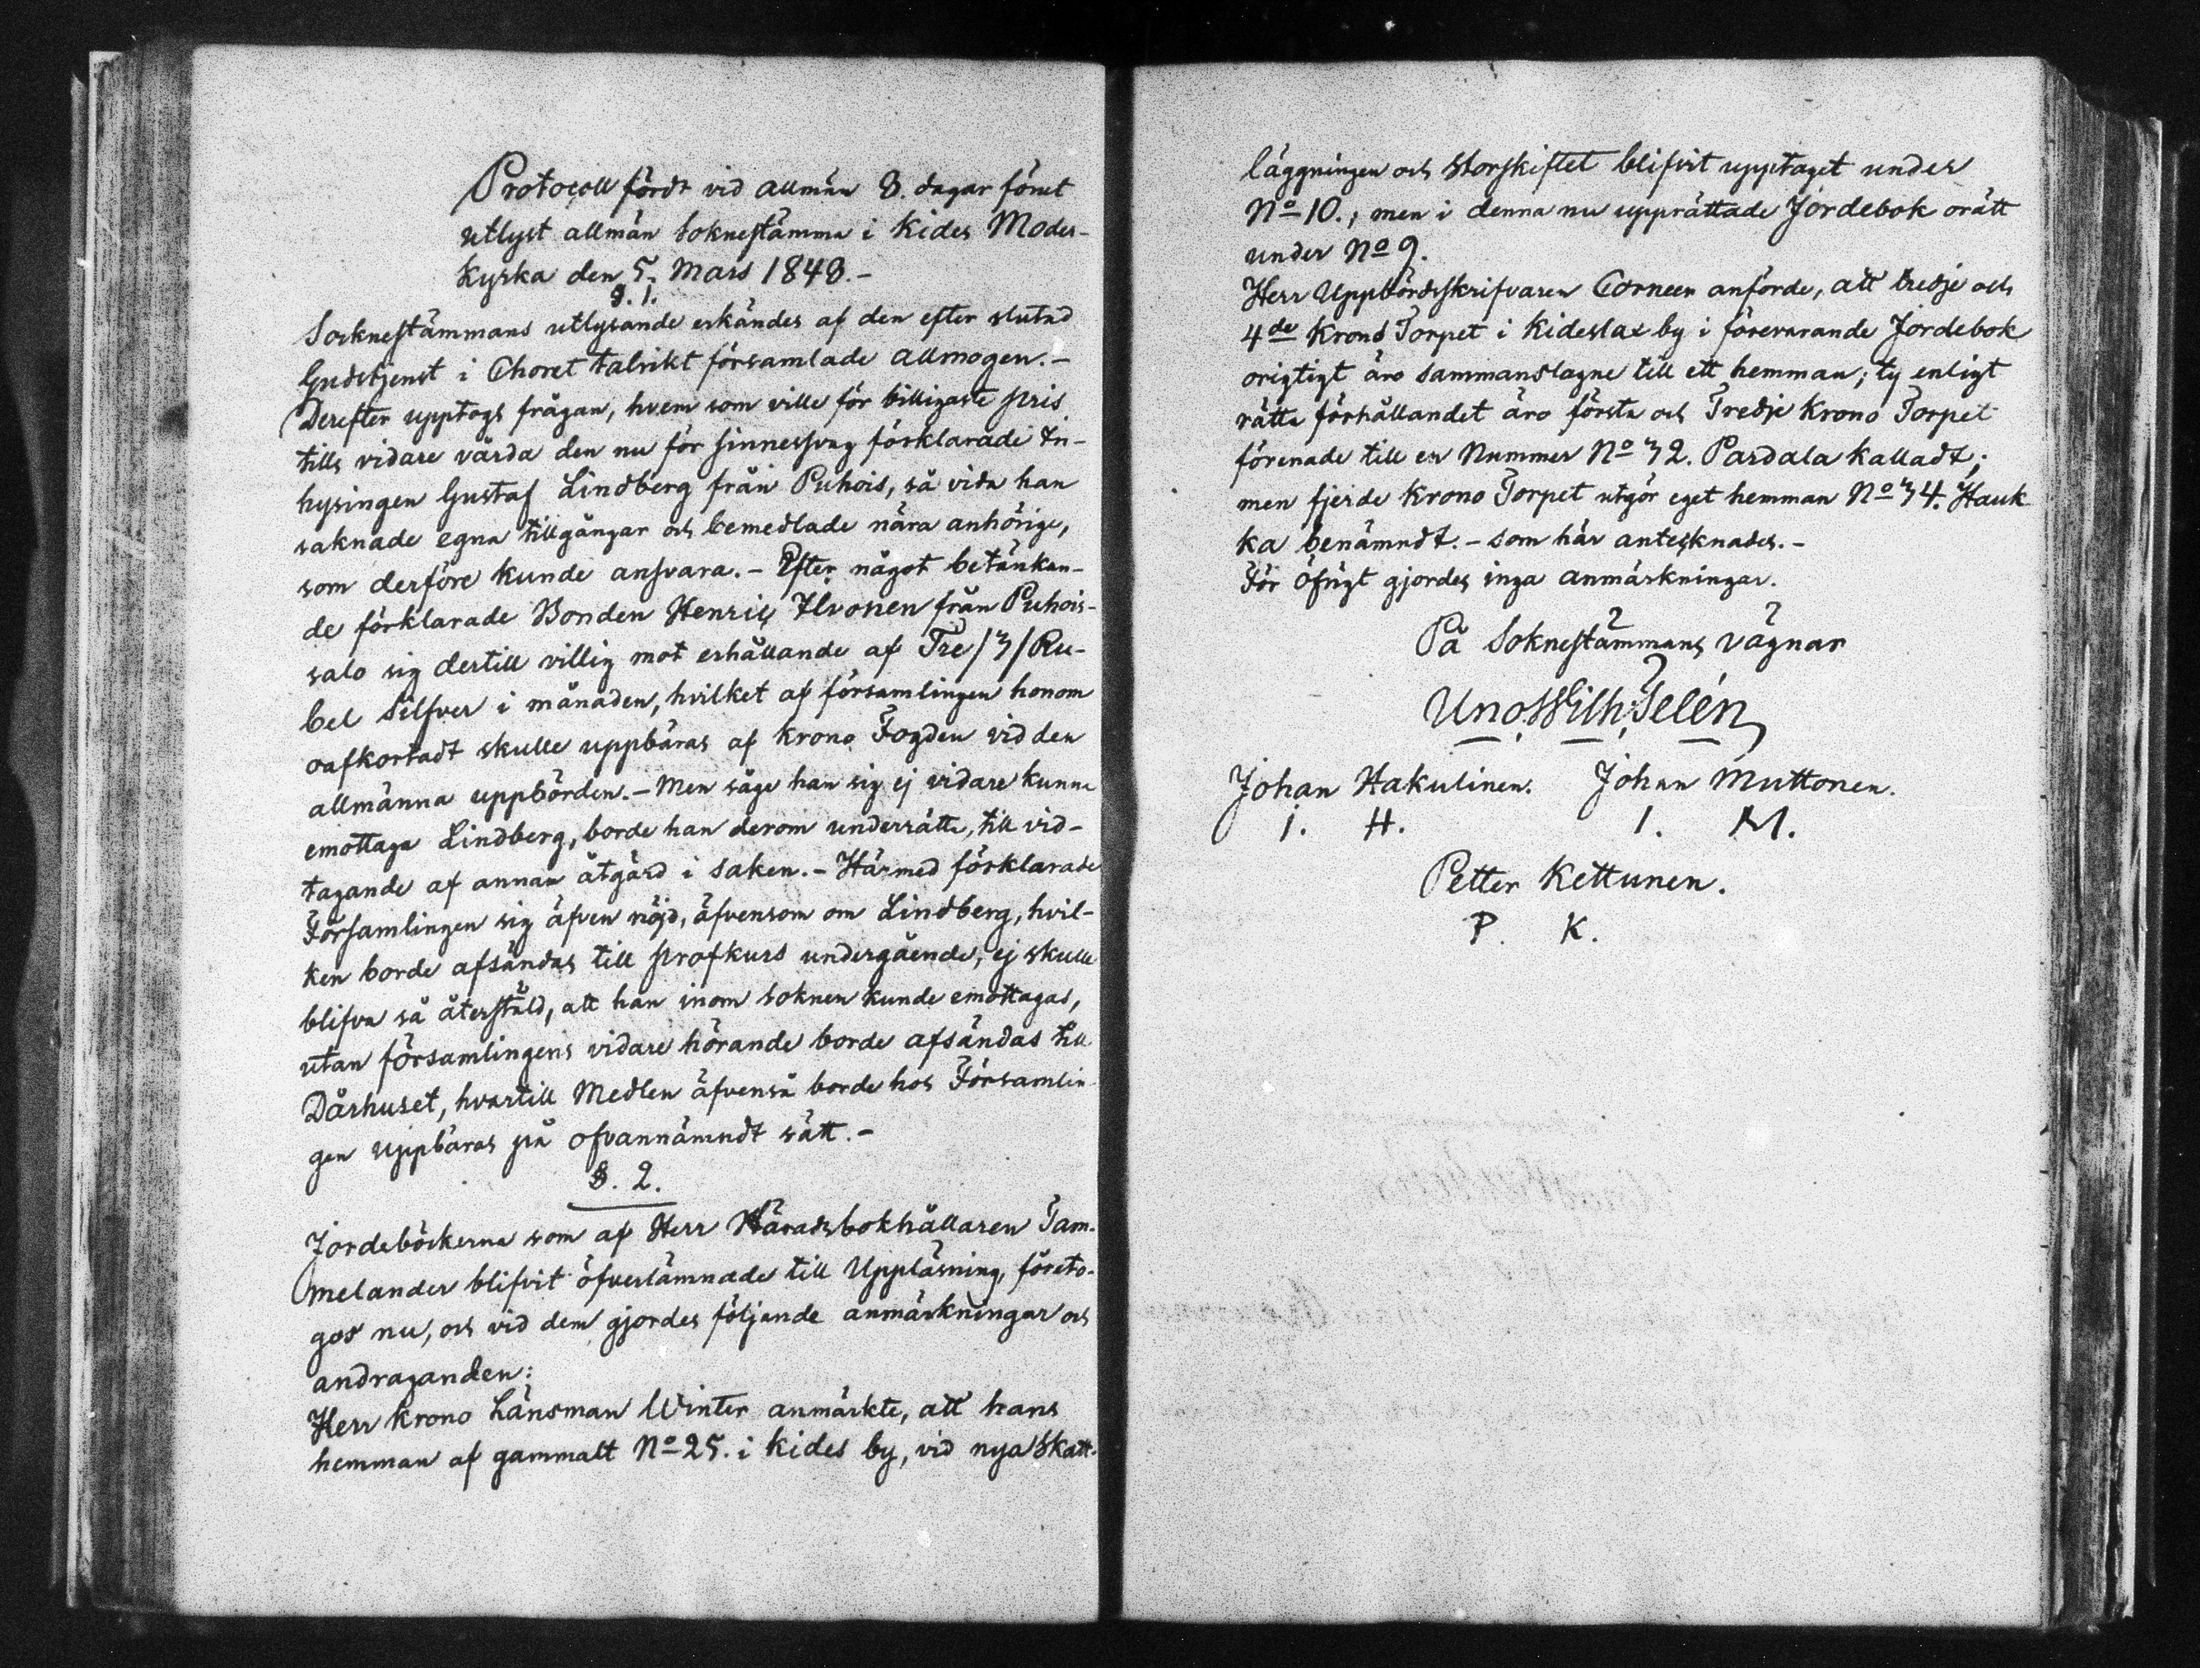 Protocoll fördt vid allmän 8. dagar förut
utlyst allmän soknestämma i Kides Moder-
kyrka den 5. Mars 1848.-
§. 1.
Socknestämmans utlysande erkändes af den efter slutad
Gudstjenst i Choret talrikt församlade allmogen.-
Derefter upptogs frågan, hvem som ville för billigaste pris
tills vidare vårda den nu för sinnessvag förklarade In-
hysingen Gustaf Lindberg från Puhois, så vida han
saknade egna tillgångar och bemedlade nära anhörige,
som derföre kunde ansvara.- Efter något betänkan-
de förklarade Bonden Henric Ilvonen från Puhois-
salo sig dertill villig mot erhållande af Tre /3/ Ru-
bel Silfver i månaden, hvilket af församlingen honom
oafkortadt skulle uppbäras af Krono Fogden vid den
allmänna uppbörden.- Men såge han sig ej vidare kunna
emottaga Lindberg, borde han derom underrätta, till vid-
tagande af annan åtgärd i saken.- Härmed förklarade
Församlingen sig äfven nöjd, äfvensom om Lindberg, hvil-
ken borde afsändas till profkurs undergående, ej skulle
blifva så återstäld, att han inom soknen kunde emottagas,
utan församlingens vidare hörande borde afsändas till
Dårhuset, hvartill Medlen äfvenså borde hos Församlin-
gen uppbäras på ofvannämndt sätt.-
§. 2.
Jordeböckerna som af Herr Häradsbokhållaren Tam-
melander blifvit öfverlämnade till Uppläsning, företo-
gos nu, och vid dem gjordes följande anmärkningar och
andraganden:
Herr Krono Länsman Winter anmärkte, att hans
hemman af gammalt No 25. i Kides by, vid nya Skatt-
läggningen och storskiftet blifvit upptaget under
No 10.; men i denna nu upprättade Jordebok orätt
under No 9.
Herr Uppbördsskrifvaren Corneer anförde, att tredje och
4de Krono Torpet i Kideslax by i förevarande Jordebok
origtigt äro sammanslagne till ett hemman; ty enligt
rätta förhållandet äro första och Tredje Krono Torpet
förenade till en Nummer No 32. Pardala kalladt;
men fjerde Krono Torpet utgör eget hemman No 34. Hauk
ka benämndt.- som här antecknades.-
För öfrigt gjordes inga anmärkningar.
På Soknestämmans vägnar
Uno Wilh: Telén
Johan Hakulinen. Johan Muttonen.
I. H. I. M.
Petter Kettunen.
P. K.